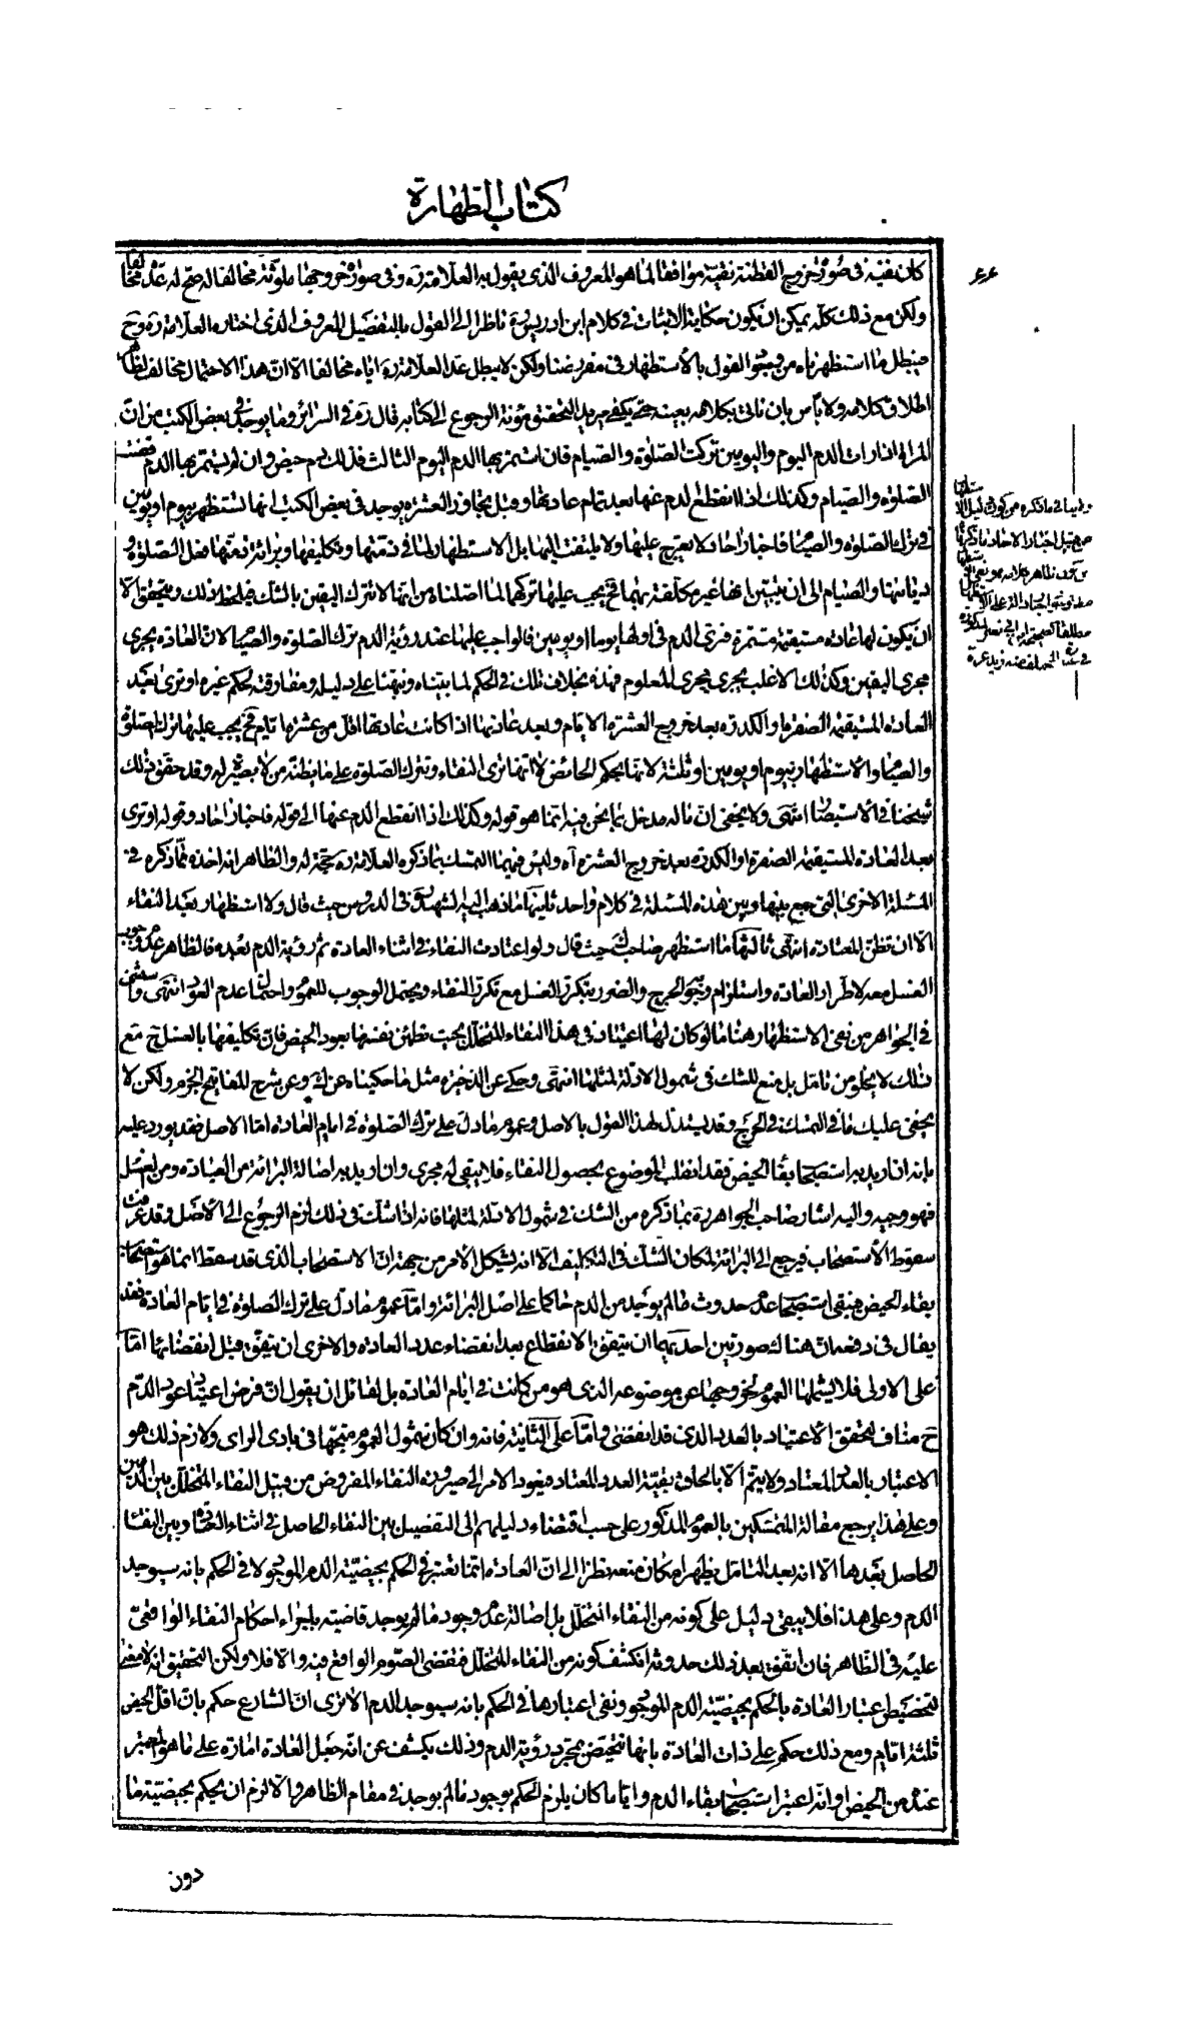 كتاب الطهارة
كان نفيه فى صورة خروج القطنة نقية موافقا لما هو المعروف الذى يقول به العلامة ره وفى صورة خروجها ملوثة مخالفا له صح له عدّه مخالفا
ولكن مع ذلك كله يمكن ان يكون حكاية الاثبات فى كلام ابن ادريس ره ناظرا الى القول بالتفصيل المعروف الذى اختاره العلامة ره وح
فيبطل ما استظهرناه من وجود القول بالاستظهار فى مفروضنا ولكن لا يبطل عدّ العلامة ره اياه مخالفا الا ان هذا الاحتمال مخالف لظاهر
اطلاق كلامه ولا بأس بان ناتى بكلامه بعينه حتى يكفى مريد التحقيق مؤنة الرجوع الى كتابه قال ره فى السرائر وما يوجد فى بعض الكتب من ان
المراة اذا رات الدم اليوم واليومين تركت الصلوة والصيام فان استمر بها الدم اليوم الثالث فذلك دم حيض وان لم يستمر بها الدم قضت
الصلوة والصيام وكذلك اذا انقطع الدم عنها بعد تمام عادتها وقبل تجاوز العشرة يوجد فى بعض الكتب انها تستظهر بيوم او يومين
فى ترك الصلوة والصيام فاخبار احاد لا يعرج عليها ولا يلتفت اليها بل الاستظهار لها فى ذمتها وتكليفها وبرائة ذمتها فعل الصلوة و
ديانتها والصيام الى ان يتبين انها غير مكلفة بهما فح يجب عليها تركهما لما اصلناه من انها لا تترك اليقين بالشك فيلحظ ذلك ويتحقق الا
ان يكون لها عادة مستقيمة مستمرة فترى الدم فى اولها يوما او يومين فالواجب عليها عند رؤية الدم ترك الصلوة والصيام لان العادة يجرى
مجرى اليقين وكذلك الاغلب يجرى مجرى المعلوم فهذه بخلاف تلك فى الحكم لما بيناه ونبهنا على دليله ومفارقته لحكم غيره او ترى بعد
العادة المستقيمة الصفرة او الكدرة بعد خروج العشرة الايام وبعد عادتها اذا كانت عادتها اقل من عشرة ايام فح يجب عليها ترك الصلوة
والصيام والاستظهار بيوم او يومين او ثلثة لانها بحكم الحائض لا انها ترى النقاء وتترك الصلوة على ما يظنه من لا بصيرة له وقد حقق ذلك
شيخنا فى الاستبصار انتهى ولا يخفى ان ماله مدخل بما نحن فيه انما هو قوله وكذلك اذا انقطع الدم عنها الى قوله فاخبار احاد وقوله او ترى
بعد العادة المستقيمة الصفرة او الكدرة بعد خروج العشرة اه وليس فيهما التمسك بما ذكره العلامة ره حجة له والظاهر انه اخذه مما ذكره فى
المسئلة الاخرى التى جمع بينها وبين هذه المسئلة فى كلام واحد ثانيها ما ذهب اليه الشهيد ره فى الدروس حيث قال ولا استظهار بعد النقاء
الا ان تظن المعتادة انتهى ثالثها ما استظهر صاحب ك حيث قال ولو اعتادت النقاء فى اثناء العادة ثم رؤية الدم بعده فالظاهر عدم وجوب
الغسل معه لاطراد العادة واستلزام وجوبه الحرج والضرر بتكرر الغسل مع تكرر النقاء ويحتمل الوجوب للعموم واحتمال عدم العود انتهى
فى الجواهر من نفى الاستظهار هنا ما لو كان لها اعتياد فى هذا النقاء المتخلل بحيث تطمئن نفسها بعود الحيض فان تكليفها بالغسل ح مع
ذلك لا يخلو من تامل بل منع للشك فى شمول الادلة لمثلها انتهى وحكى عن الذخيرة مثل ما حكيناه عن ك وعن شرح المفاتيح الجزم ولكن لا
يخفى عليك ما فى التمسك فى الحرج وقد يستدل لهذا القول بالاصل وعموم ما دل على ترك الصلوة فى ايام العادة اما الاصل فقد يورد عليه
بانه ان اريد به استصحاب بقاء الحيض فقد انقلب الموضوع بحصول النقاء فلا يبقى له مجرى وان اريد به اصالة البرائة من العبادة ومن الغسل
فهو وجيه واليه اشار صاحب الجواهر ره بما ذكره من الشك فى شمول الادلة لمثلها فانه اذا شك فى ذلك لزم الرجوع الى الاصل وقد عرفت
سقوط الاستصحاب فيرجع الى البرائة لمكان الشك فى التكليف الا انه يشكل الامر من جهة ان الاستصحاب الذى قد سقط انما هو استصحاب
بقاء الحيض فيبقى استصحاب عدم حدوث ما لم يوجد من الدم حاكما على اصل البرائة واما عموم ما دل على ترك الصلوة فى ايام العادة فقد
يقال فى دفعه ان هناك صورتين احديهما ان يتفق الانقطاع بعد انقضاء عدد العادة والاخرى ان يتفق قبل انقضائها اما
على الاولى فلا يشملها العموم لخروجها عن موضوعه الذى هو من كانت فى ايام العادة بل لقائل ان يقول ان فرض اعتياد عود الدم
ح مناف لتحقق الاعتياد بالعدد الذى قد انقضى واما على الثانية فانه وان كان شمول العموم متجها فى بادى الراى ولازم ذلك هو
الاعتبار بالعدد المعتاد ولا يتم الا بالحاق بقية العدد المعتاد فيعود الامر الى صيرورة النقاء المفروض من قبيل النقاء المتخلل بين الدمين
وعلى هذا يرجع مقالة المتمسكين بالعموم المذكور على حسب اقتضاء دليلهم الى التفصيل بين النقاء الحاصل فى اثناء العادة وبين النقاء
الحاصل بعدها الا انه بعد التامل يظهر امكان منعه نظرا الى ان العادة انما تعتبر فى الحكم بحيضية الدم الموجود لا فى الحكم بانه سيوجد
الدم وعلى هذا فلا يبقى دليل على كونه من النقاء المتخلل بل اصالة عدم وجود ما لم يوجد قاضية باجراء احكام النقاء الواقعى
عليه فى الظاهر فان اتفق بعد ذلك حدوثه انكشف كونه من النقاء المتخلل فتقضى الصوم الواقع فيه والا فلا ولكن التحقيق انه لا معنى
لتخصيص اعتبار العادة بالحكم بحيضية الدم الموجود ونفى اعتبارها فى الحكم بانه سيوجد الدم الا ترى ان الشارع حكم بان اقل الحيض
ثلثة ايام ومع ذلك حكم على ذات العادة بانها تتحيض بمجرد رؤية الدم وذلك يكشف عن انه جعل العادة امارة على ما هو المعتبر
عنده من الحيض او انه اعتبر استصحاب بقاء الدم وايا ما كان يلزم الحكم بوجود ما لم يوجد فى مقام الظاهر والا لزم ان يحكم بحيضية ما
دون